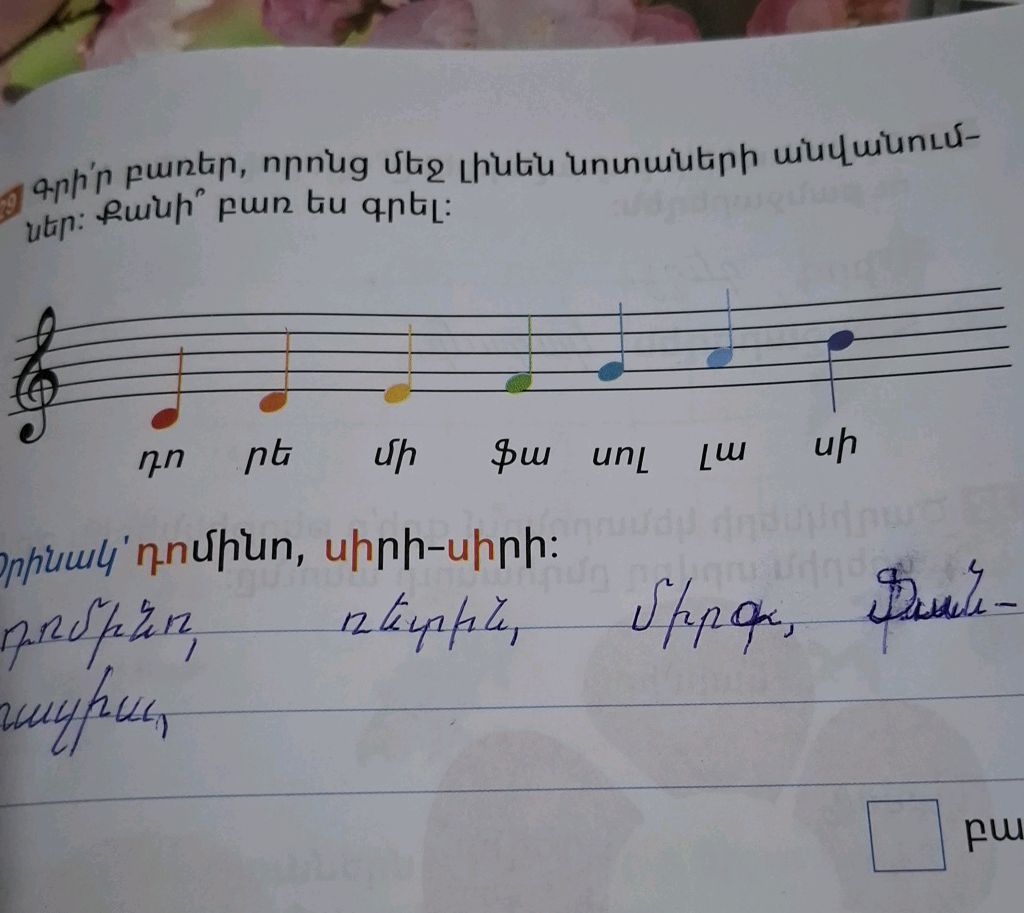 29 Գրի՛ր բառեր, որոնց մեջ լինեն նոտաների անվանում-
ներ։ Քանի՞ բառ ես գրել։
դո րե մի ֆա սոլ լա սի
Օրինակ՝ դոմինո, սիրի-սիրի։
դոմինո, ռետին, միրգ, ֆան-
տազիա,
բա